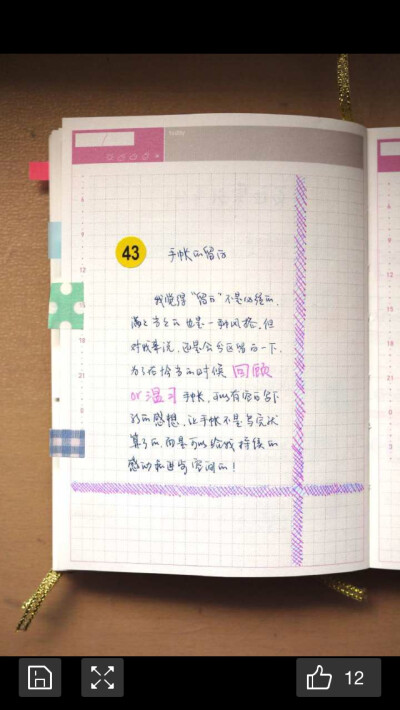 43
手帐的留白
我觉得“留白”不是必须的,
满之当之的也是一种风格,但
对我来说,还是会留白一下,
为了在恰当的时候 回顾
or 温习 手帐,可以有空白写下
新的感想,让手帐不是写完就
算了的,而是可以给我持续的
感动和进步空间的!
12